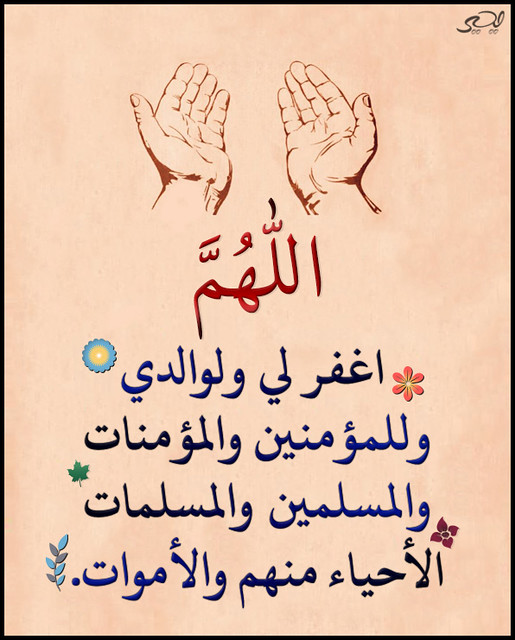 اللّٰهُمَّ
اغفر لي ولوالدي
وللمؤمنين والمؤمنات
والمسلمين والمسلمات
الأحياء منهم والأموات.